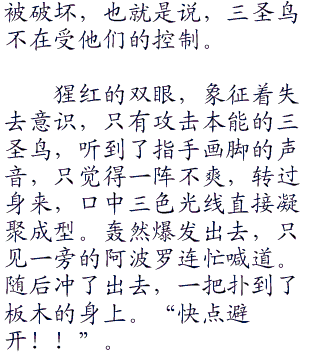 被破坏，也就是说，三圣鸟
不在受他们的控制。
猩红的双眼，象征着失
去意识，只有攻击本能的三
圣鸟，听到了指手画脚的声
音，只觉得一阵不爽，转过
身来，口中三色光线直接凝
聚成型。轰然爆发出去，只
见一旁的阿波罗连忙喊道。
随后冲了出去，一把扑到了
板木的身上。“快点避
开！！”。